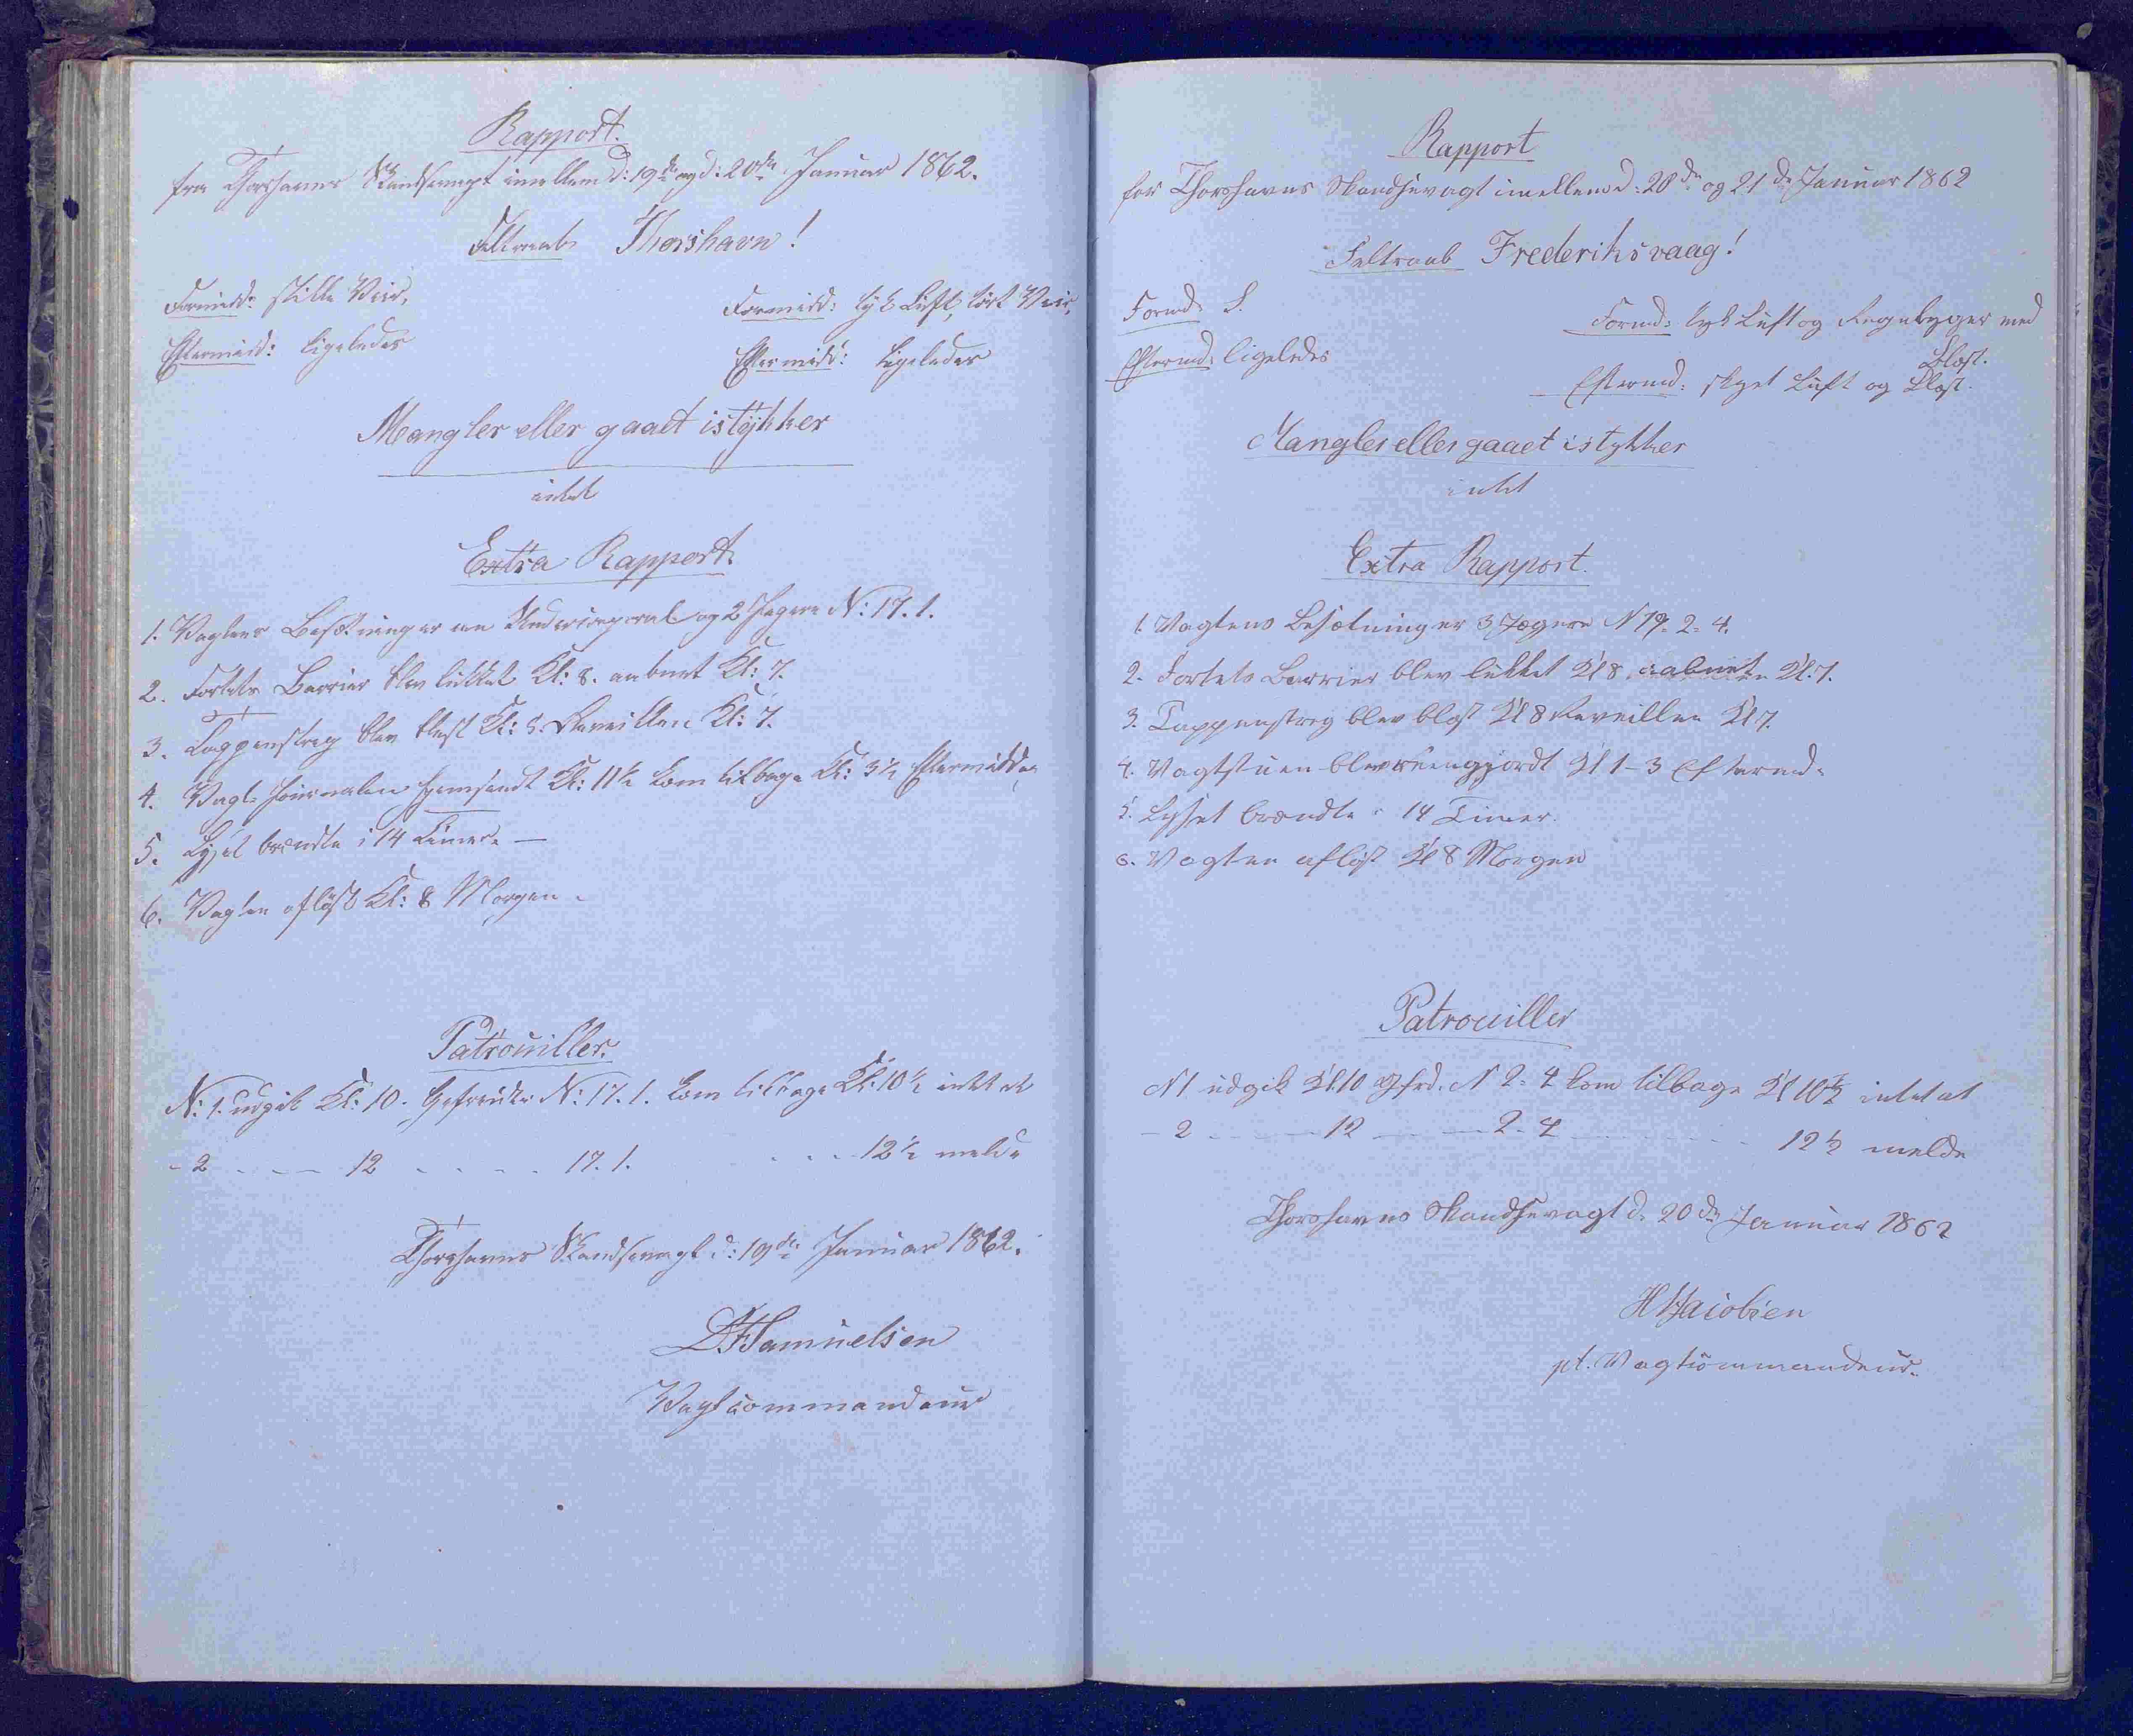 Rapport.
fra Thorshavns Skandsevagt imellem d: 19de og d: 20de Januar 1862.
Feltraab Thorshavn!
Formidd: stille Veir,
Eftermidd: ligeledes
Formidd: tyk Luft, tørt Veir,
Eftermidd: ligeledes
Mangler eller gaaet istykker
intet
Extra Rapport.
1. Vagtens Besætning er en Undercorporal og 2 Jægere N: 17. 1.
2. Fortets Barrier blev lukket Kl: 8. aabnet Kl: 7.
3. Tappenstreg blev blæst Kl: 8. Reveillen Kl: 7.
4. Vagt-Journalen hjemsendt Kl: 11½ kom tilbage Kl: 3½ Eftermiddag
5. Lyset brændte i 14 Timer. —
6. Vagten afløst Kl: 8 Morgen.
Patrouiller.
N: 1. udgik Kl: 10. Gefreider N: 17. 1. kom tilbage Kl: 10½ intet at
- 2 - - - 12 - - - - 17. 1. - - - 12½ melde
Thorshavns Skandsevagt d: 19de Januar 1862.
Samuelsen
Vagtcommandeur
Rapport
for Thorshavns Skandsevagt imellem d: 20de og 21de Januar 1862
Feltraab Frederiksvaag!
Formd: S.
Eftermd: ligeledes
Formd: tyk Luft og Regnbyger med
Blæst.
Eftermd: skyet Luft og Blæst.
Mangler eller gaaet istykker
intet
Extra Rapport.
1. Vagtens Besætning er 3 Jægere N 19. 2. 4.
2. Fortets Barrier blev lukket Kl 8 aabnet Kl. 7.
3. Tappenstreg blev blæst Kl 8 Reveillen Kl 7.
4. Vagtstuen blev reengjordt Kl 1-3 Eftermd.
5. Lyset brændte i 14 Timer.
6. Vagten afløst Kl 8 Morgen
Patrouiller
N 1 udgik Kl 10 Gfrd. N 2. 4 kom tilbage Kl 10½ intet at
- 2 - - - 12 - - - 2. 4 - - - - 12½ melde
Thorshavns Skandsevagt d. 20de Januar 1862
Jacobsen
pt. Vagtcommandeur.